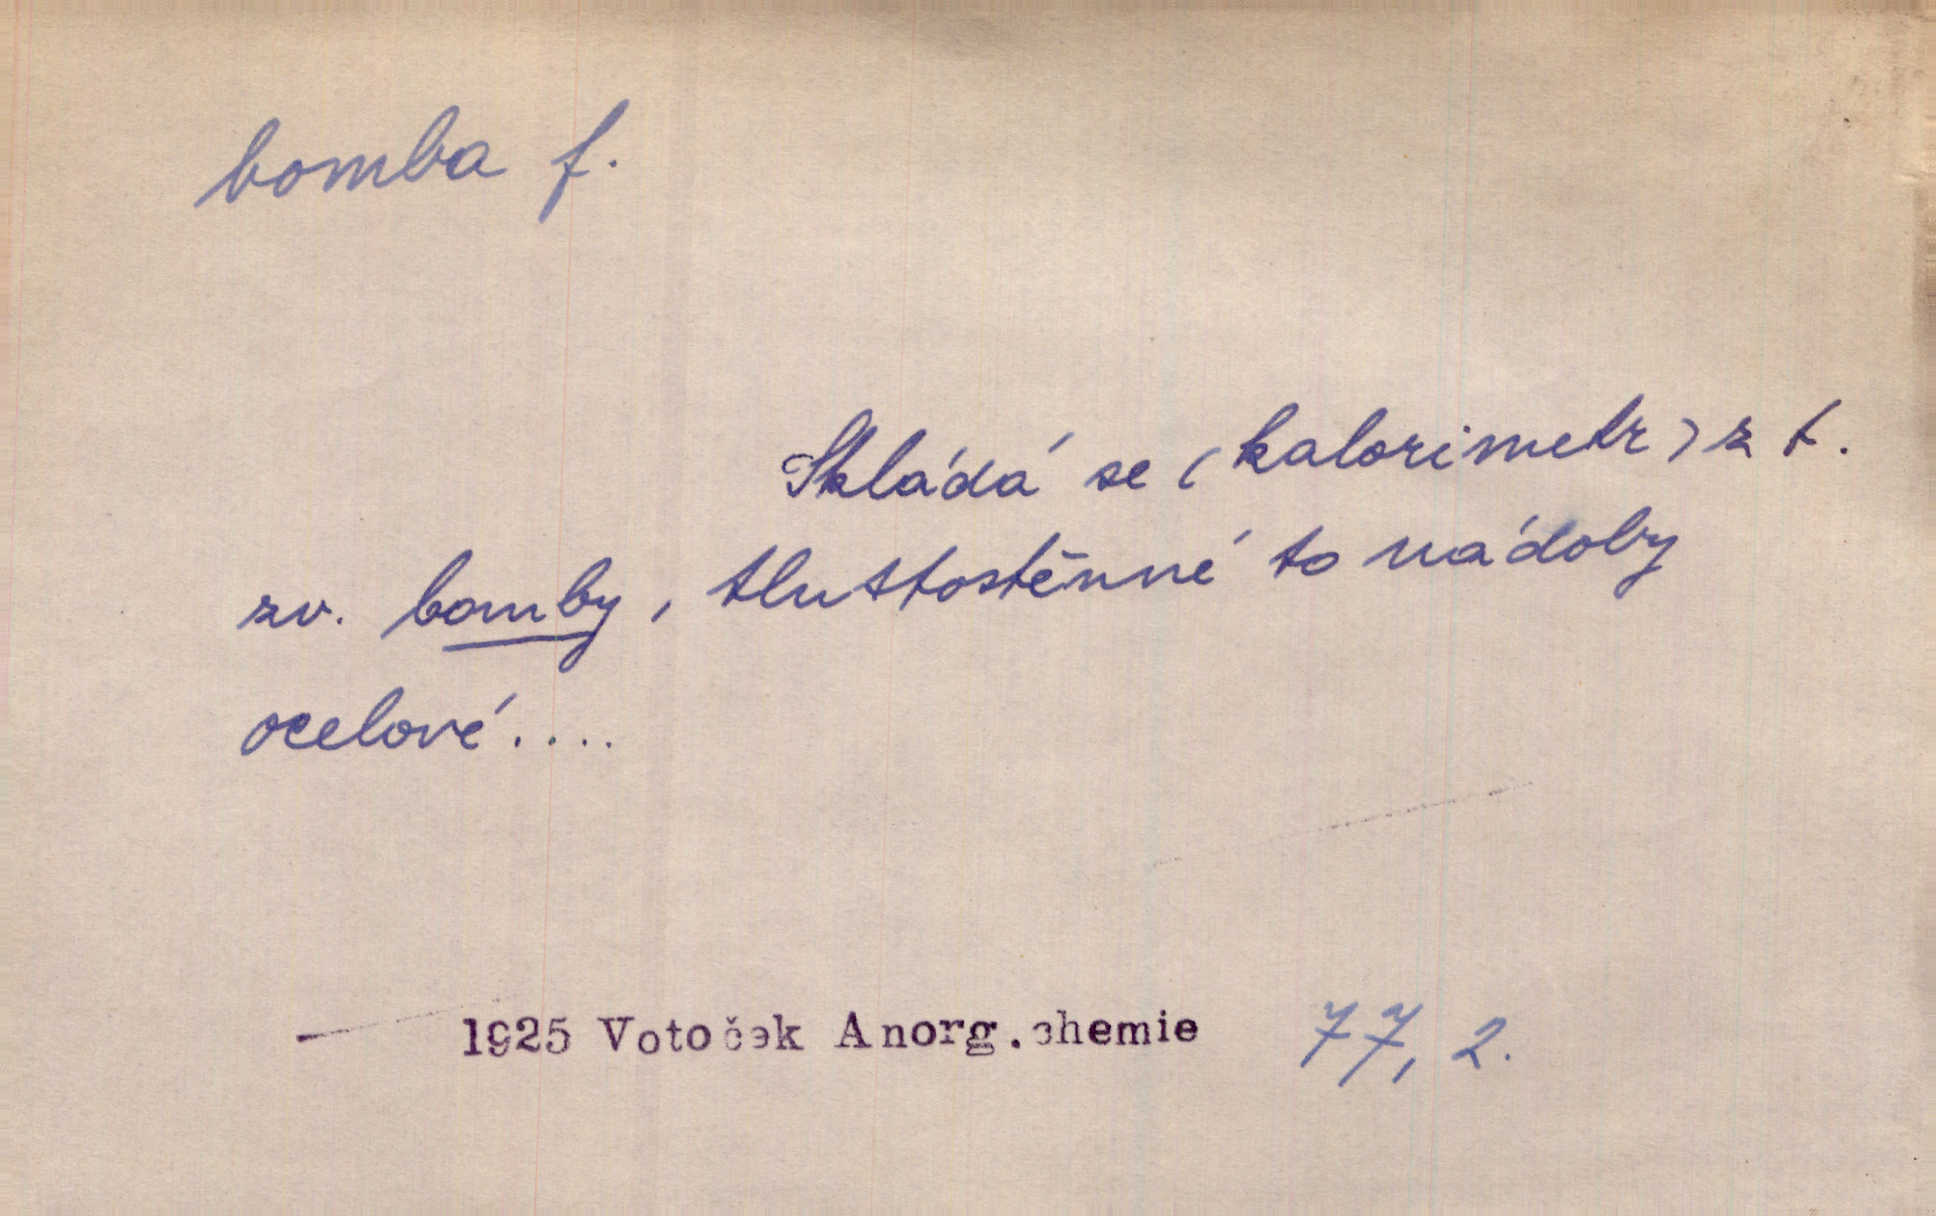 bomba f.
Skládá se (kalorimetr) z t.
zv. bomby, tlustostěnné to nádoby
ocelové....
1925 Votoček Anorg.chemie 77, 2.